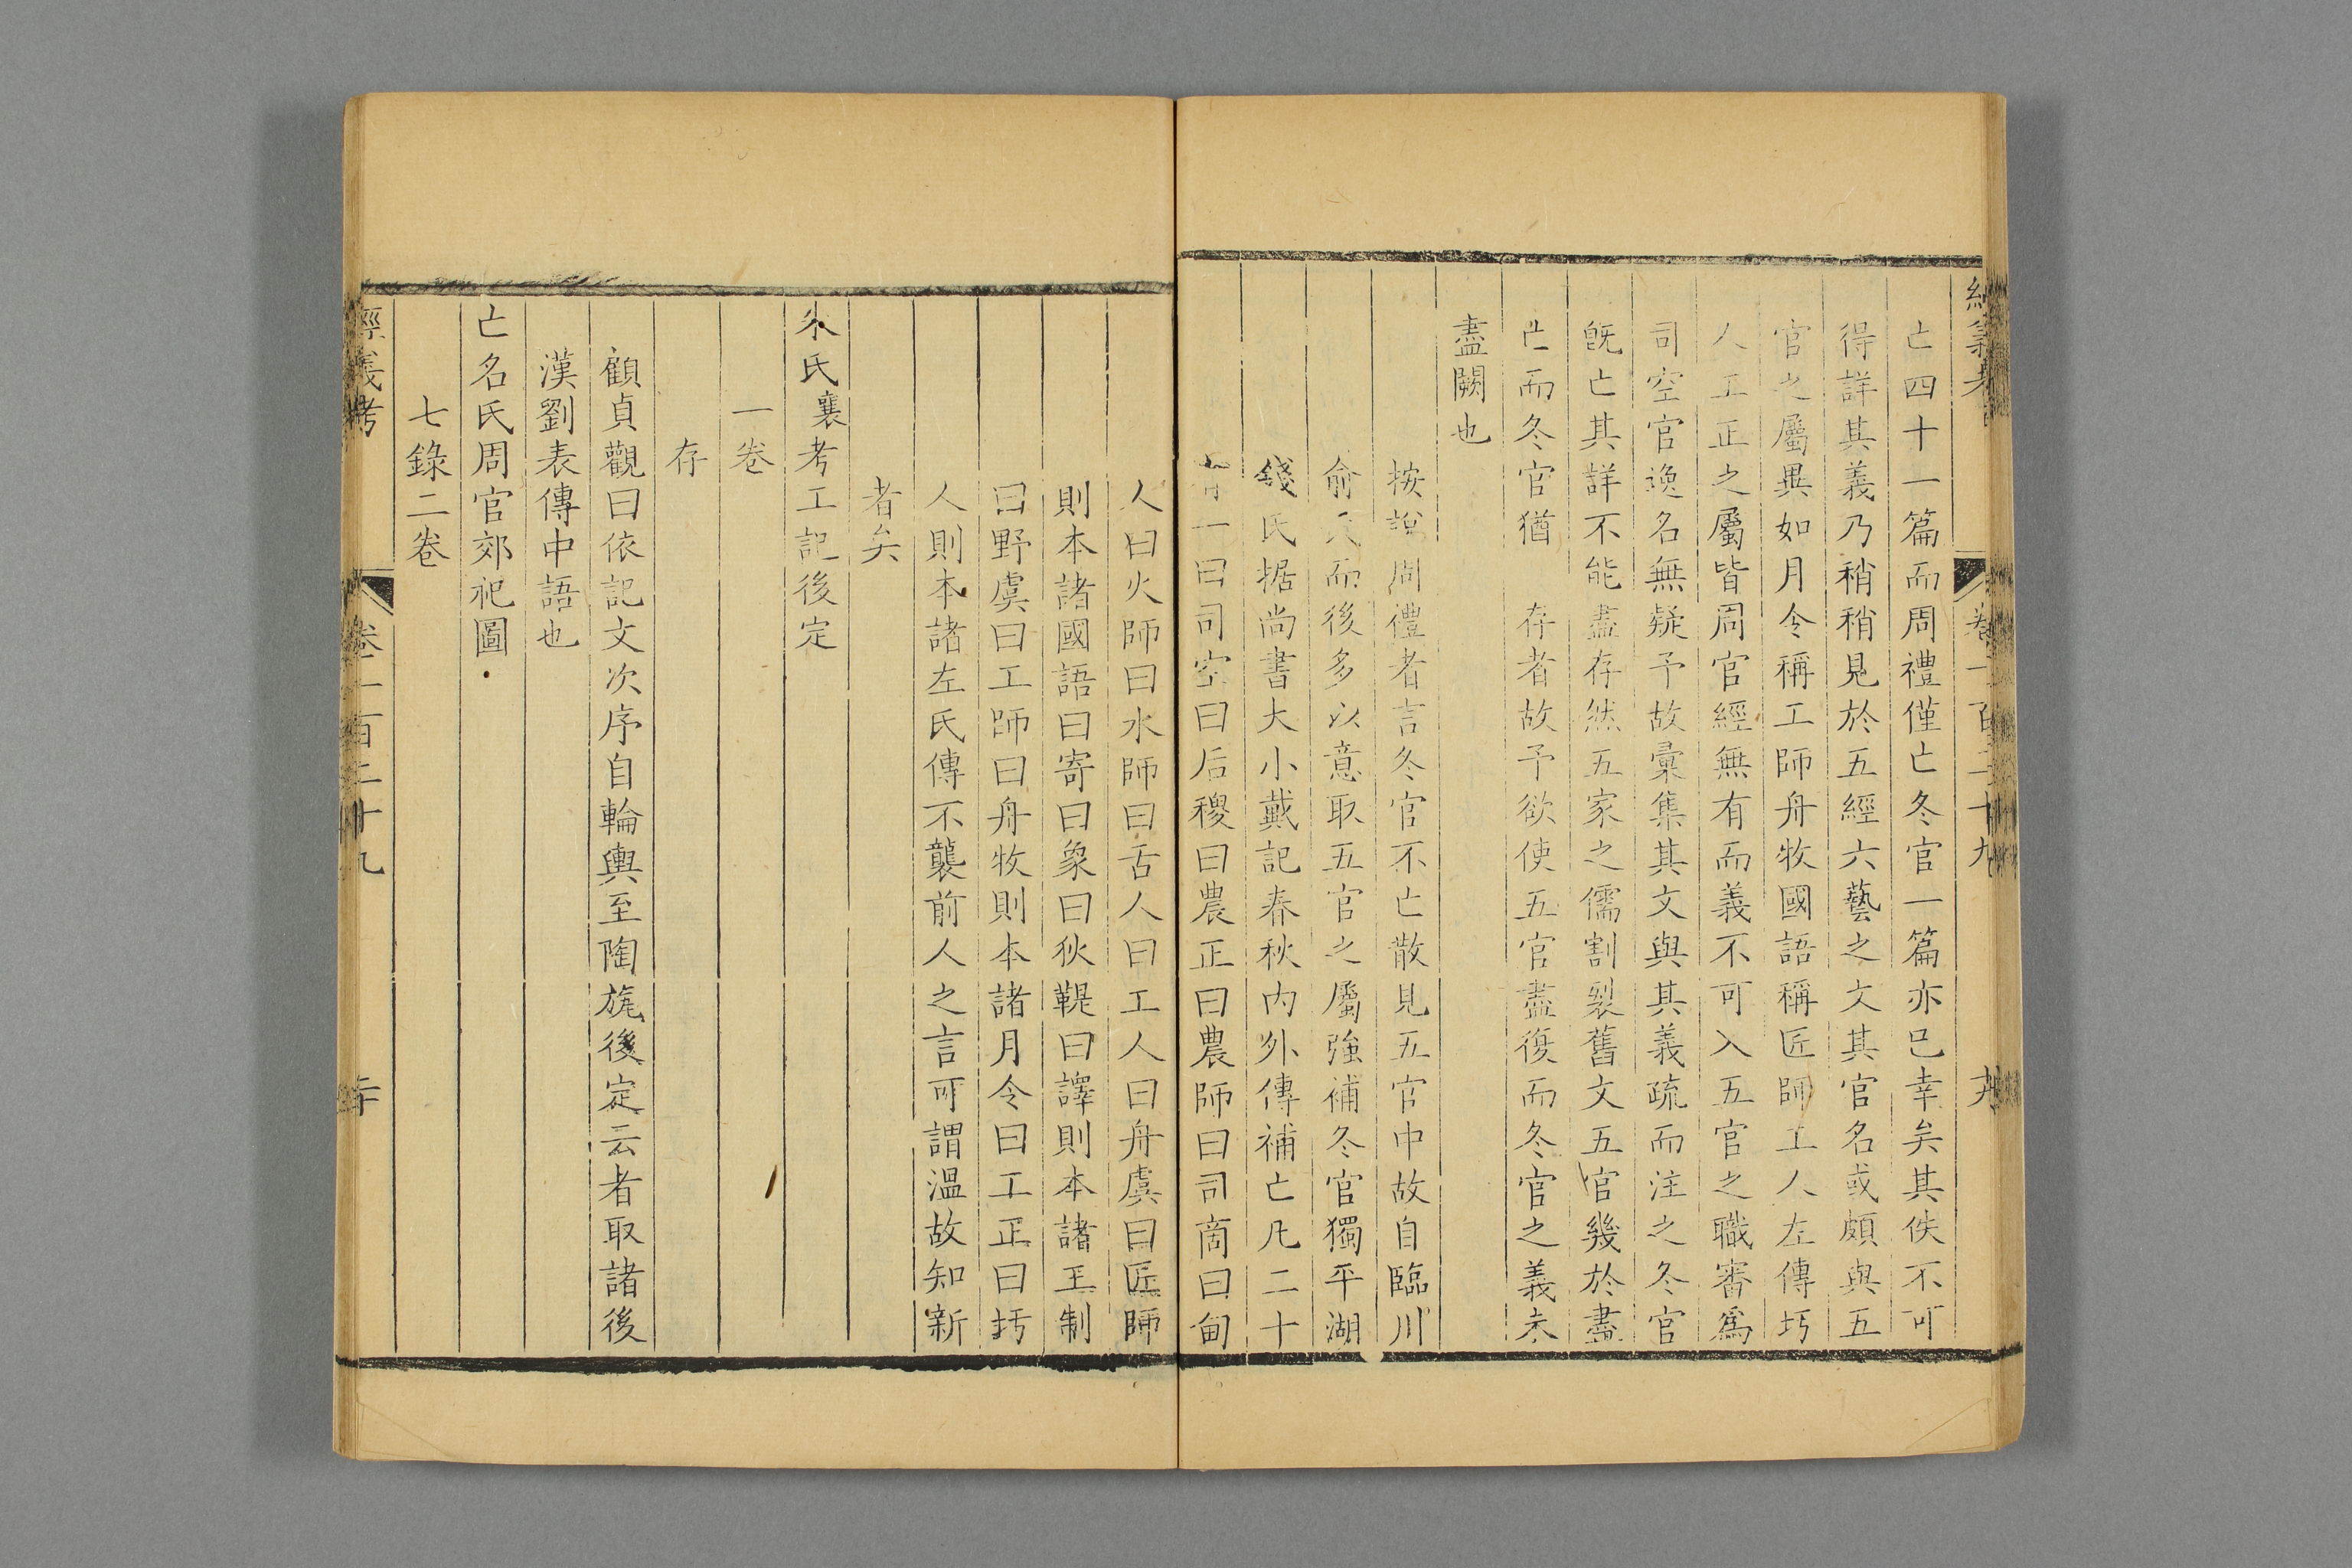 經義考 卷一百二十九 九
亡四十一篇而周禮僅亡冬官一篇亦已幸矣其佚不可
得詳其義乃稍稍見於五經六藝之文其官名或頗與五
官之屬異如月令稱工師舟牧國語稱匠師工人左傳圬
人工正之屬皆周官經無有而義不可入五官之職審爲
司空官逸名無疑予故彙集其文與其義疏而注之冬官
旣亡其詳不能盡存然五家之儒割裂舊文五官幾於盡
亡而冬官猶存者故予欲使五官盡復而冬官之義未
盡闕也
按說周禮者言冬官不亡散見五官中故自臨川
俞氏而後多以意取五官之屬強補冬官獨平湖
錢氏据尚書大小戴記春秋內外傳補亡凡二十
有一曰司空曰后稷曰農正曰農師曰司啇曰甸
人曰火師曰水師曰舌人曰工人曰舟虞曰匠師
則本諸國語曰寄曰象曰狄鞮曰譯則本諸王制
曰野虞曰工師曰舟牧則本諸月令曰工正曰圬
人則本諸左氏傳不襲前人之言可謂溫故知新
者矣
朱氏襄考工記後定
一卷
存
顧貞觀曰依記文次序自輪輿至陶旊後定云者取諸後
漢劉表傳中語也
亡名氏周官郊祀圖
七錄二卷
經義考 卷一百二十九 二十